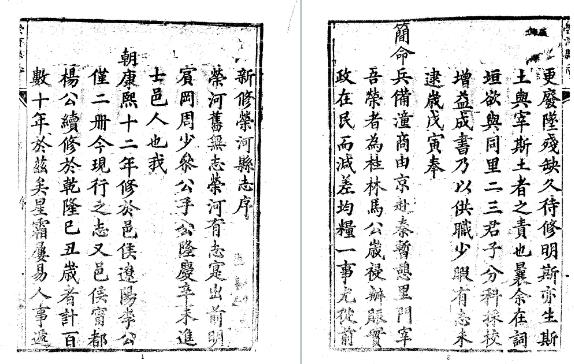 新修榮河縣志序
榮河舊無志榮河有志寔出前明
賓岡周少參公手公隆慶辛未進
士邑人也我
朝康熙十二年修於邑侯遼陽李公
僅二冊今現行之志又邑侯甯都
楊公續修於乾隆己丑歲者計百
數十年於茲矣星霜屢易人事遞
1
更廢墜殘缺久待修明斯亦生斯
土與宰斯土者之責也曩余在詞
垣欲與同里二三君子分科採校
增益成書乃以供職少暇有志未
逮歲戊寅奉
簡命兵備潼商由京赴秦暫憩里門宰
吾榮者為桂林馬公歲祲辦賑實
政在民而減差均糧一事尤從前
2